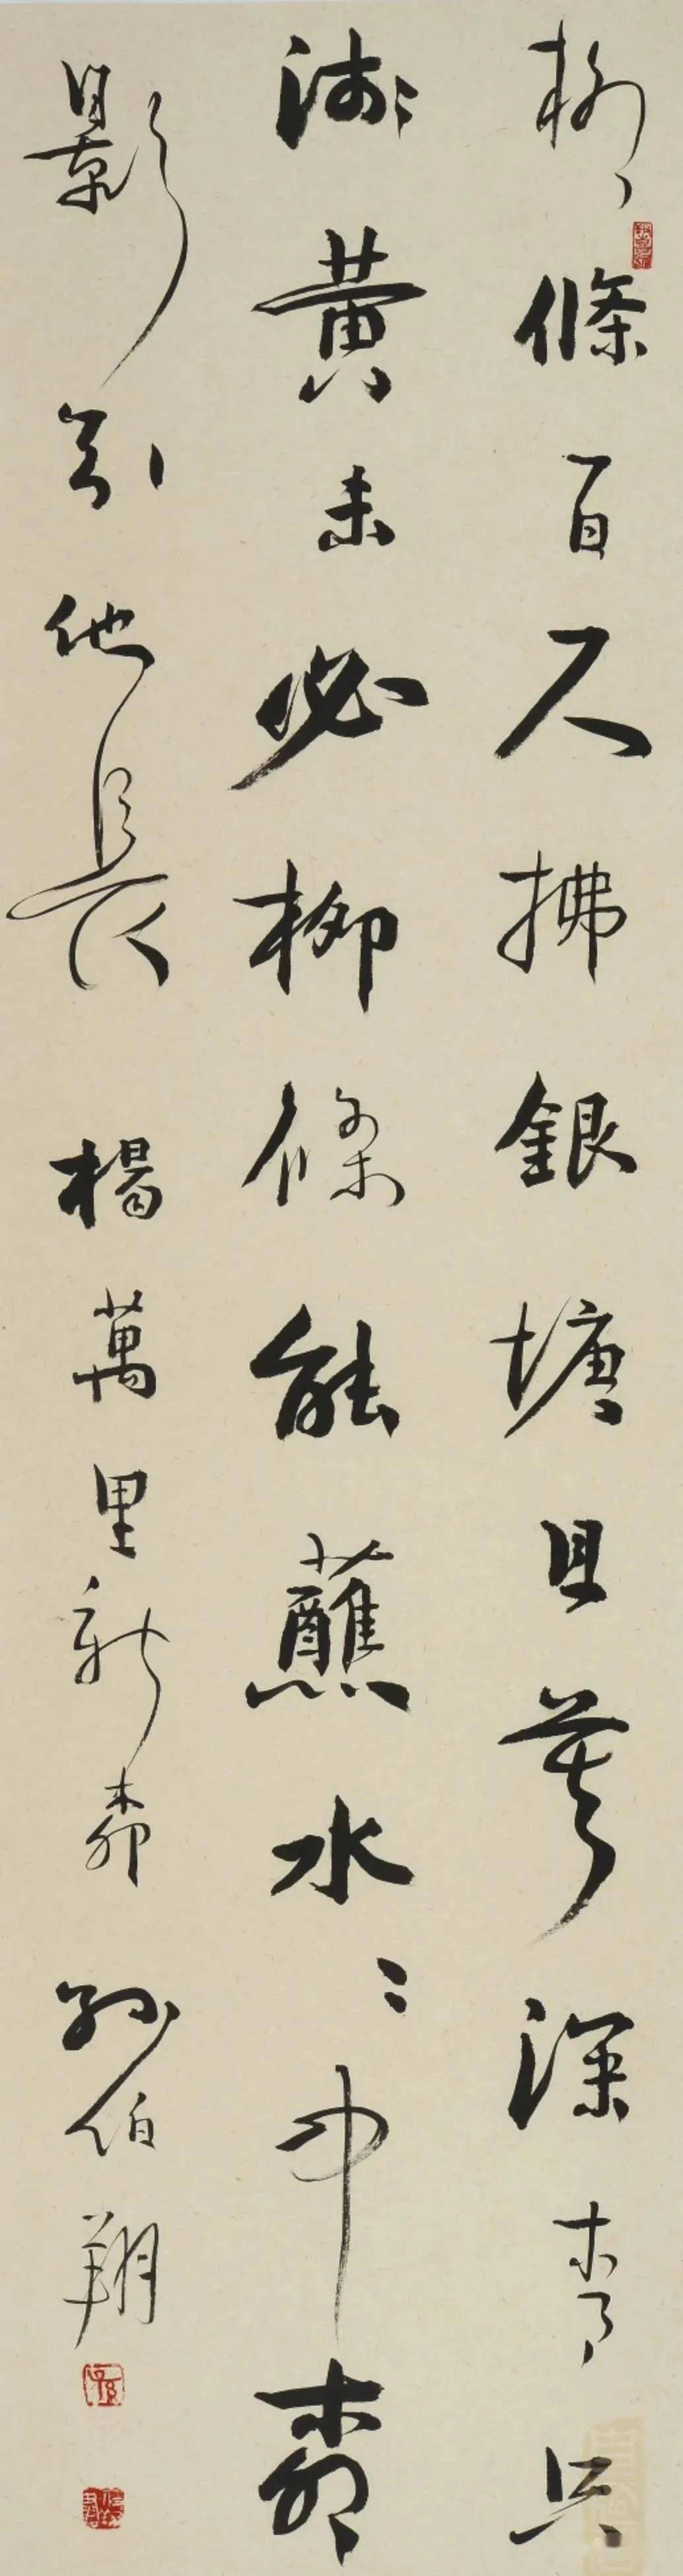 柳條百尺拂銀塘且莫深青只
淺黃未必柳條能蘸水〻中柳
影引他長 楊萬里新柳 孫伯翔